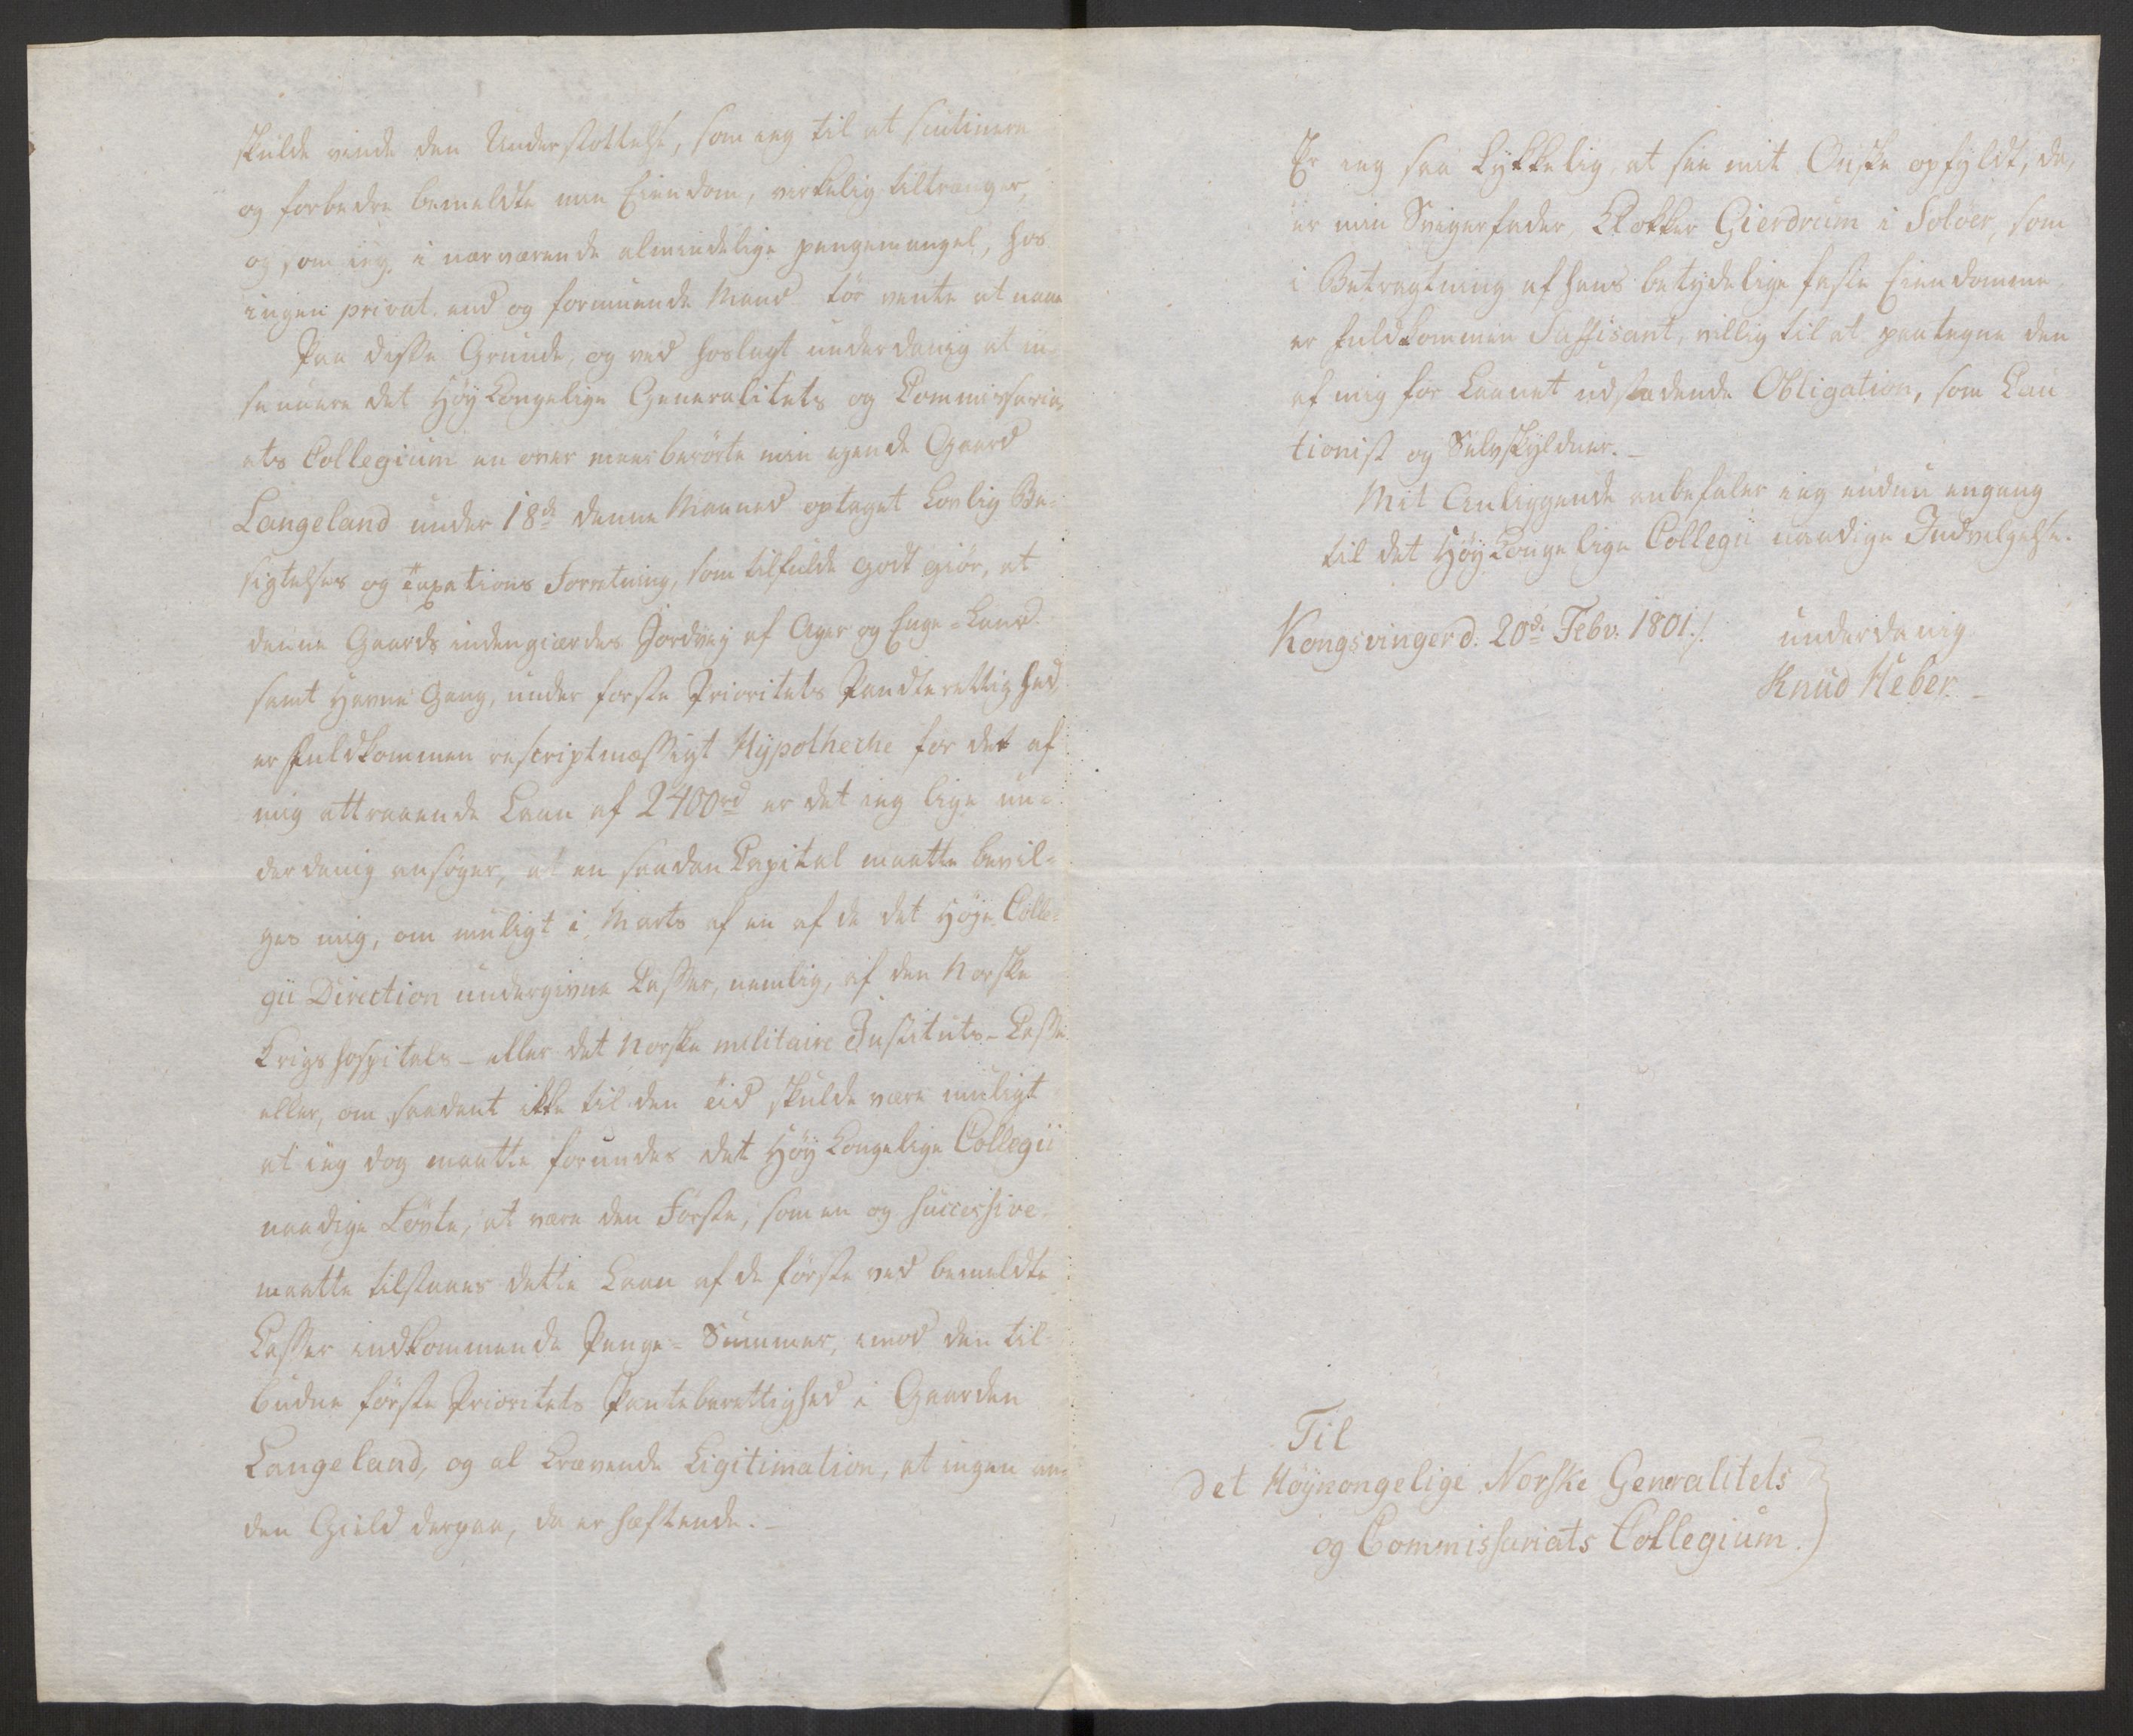 skulde vinde den Understøttelse, som ieg til at soutinere
og forbedre bemeldte min Eiendom, virkelig tiltrænger,
og som ieg, i nærværende almindelige pengemangel, hos
ingen privat, end og formuende Mand tør vente at naae
Paa disse Grunde, og ved hoslagt underdanig at in-
sinuere det Høy Kongelige Generalitets og Commissaria-
ats Collegium en over meerberørte min egende Gaard
Langeland under 18de denne Maaned optaget Lovlig Be-
sigtelses og Taxations Forretning, som tilfulde godtgiør, at
denne Gaards indengiærdes Jordvej af Ager og Enge-Land
samt Havne Gang, under første Prioritets Panderettighed,
er fuldkommen rescriptmæssigt Hypotheche for det af
mig attraaende Laan af 2400rd er det ieg lige un-
derdanig ansøger, at en saadan Capital maatte bevil-
ges mig, om muligt i Marts af en af de det Høje Colle-
gii Direction undergivne Casser, nemlig, af den Norske
Krigshospitals - eller det Norske militaire Instituts-Casse
eller, om saadant ikke til den tid skulde være muligt
at ieg dog maatte forundes det Høy Kongelige Collegii
naadige Løvte, at være den Første, som en og successive
maatte tilstaaes dette Laan af de første ved bemeldte
Casser indkommende Penge-Summer, imod den til-
budne første Prioritets Panteberettighed i Gaarden
Langeland, og al Krævende Ligitimation, at ingen an-
den Gield derpaa, da er hæftende. -
Er ieg saa Lykkelig, at see mit Ønske opfyldt, da,
er min Svigerfader, Klokker Gierdrum i Soløer, som
i Betragtning af hans betydelige faste Eiendomme
er fuldkommen Suffisant, villig til at paategne den
af mig for Laanet udstædende Obligation, som Cau
tionist og Selvskyldner. -
Mit Anliggende anbefaler ieg endnu engang
til det Høy Kongelige Collegii naadige Indvilgelse.
Kongsvinger d. 20d. Febv. 1801./. underdanig
Knud Heber. -
Til
det Høykongelige Norske Generalitets
og Commissariats Collegium.